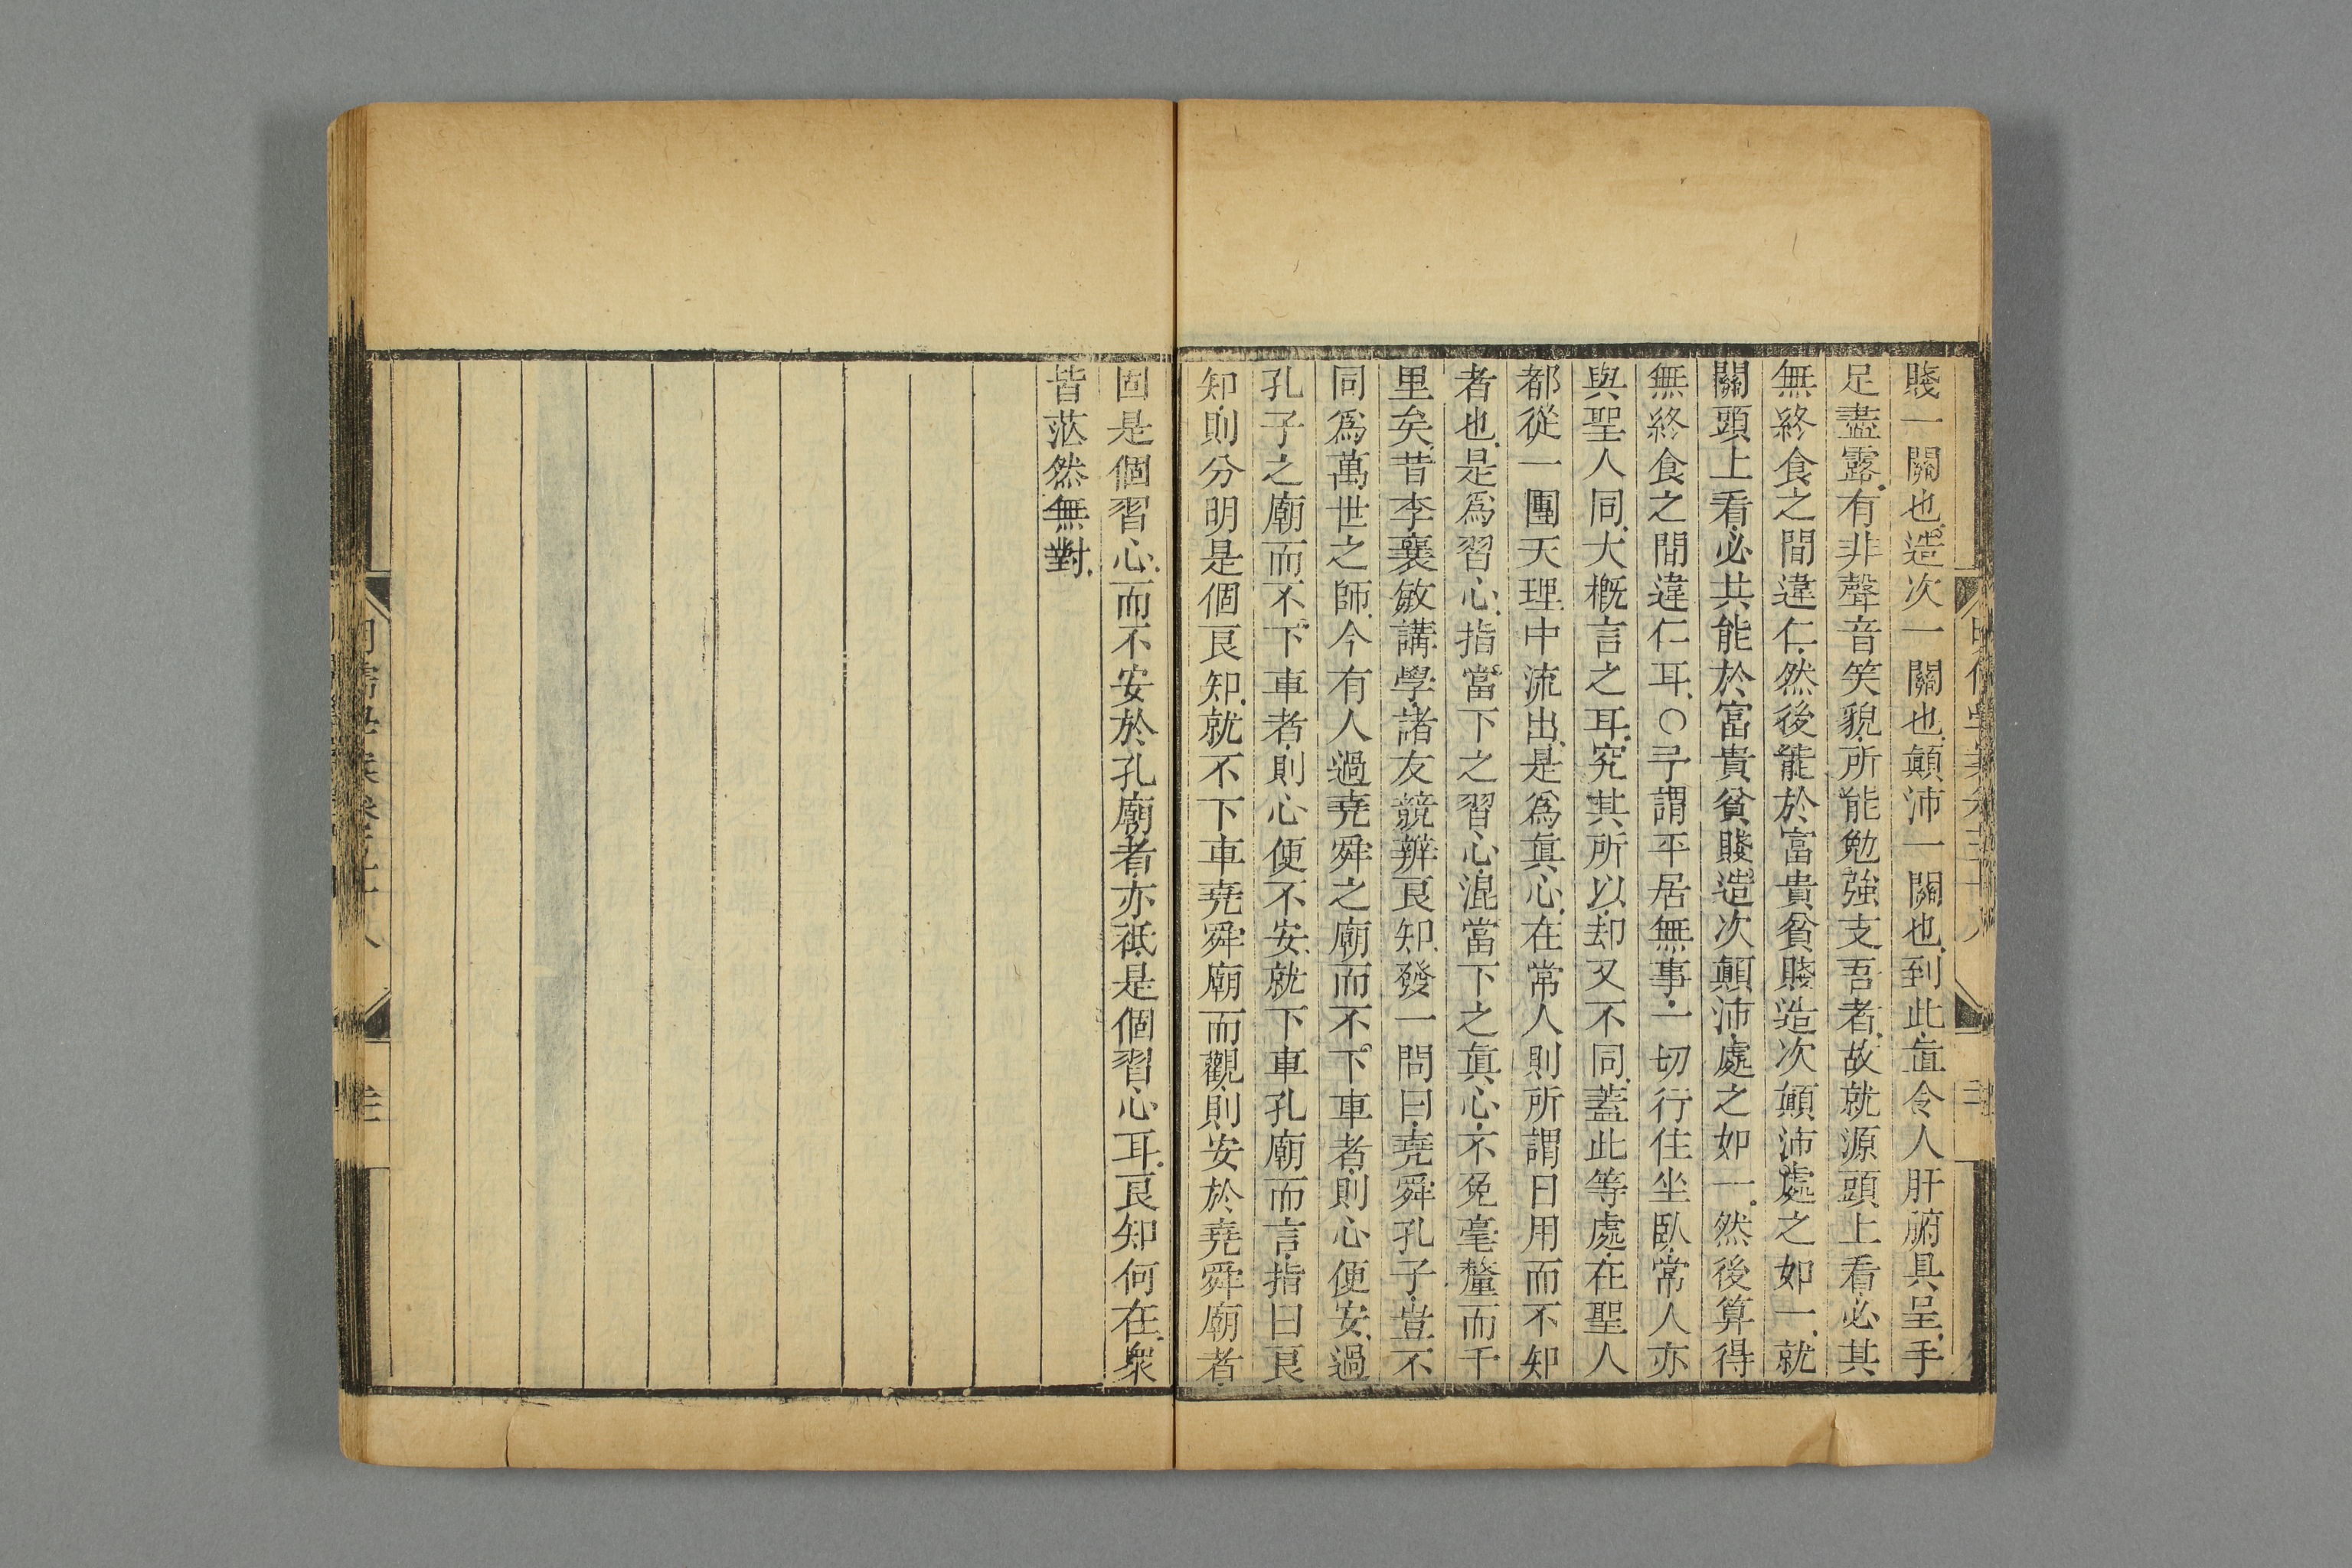 賤一關也造次一關也顛沛一關也到此直令人肝腑具呈手
足盡露有非聲音笑貌所能勉強支吾者故就源頭上看必其
無終食之間違仁然後能於富貴貧賤造次顛沛處之如一就
關頭上看必共能於富貴貧賤造次顛沛處之如一然後算得
無終食之間違仁耳○予謂平居無事一切行住坐臥常人亦
與聖人同大槪言之耳究其所以却又不同蓋此等處在聖人
都從一團天理中流出是爲眞心在常人則所謂日用而不知
者也是爲習心指當下之習心混當下之眞心不免毫釐而千
里矣昔李襄敏講學諸友競辨良知發一問曰堯舜孔子豈不
同爲萬世之師今有人過堯舜之廟而不下車者則心便安過
孔子之廟而不下車者則心便不安就下車孔廟而言指曰良
知則分明是個良知就不下車堯舜廟而觀則安於堯舜廟者
固是個習心而不安於孔廟者亦祗是個習心耳良知何在衆
皆茫然無對